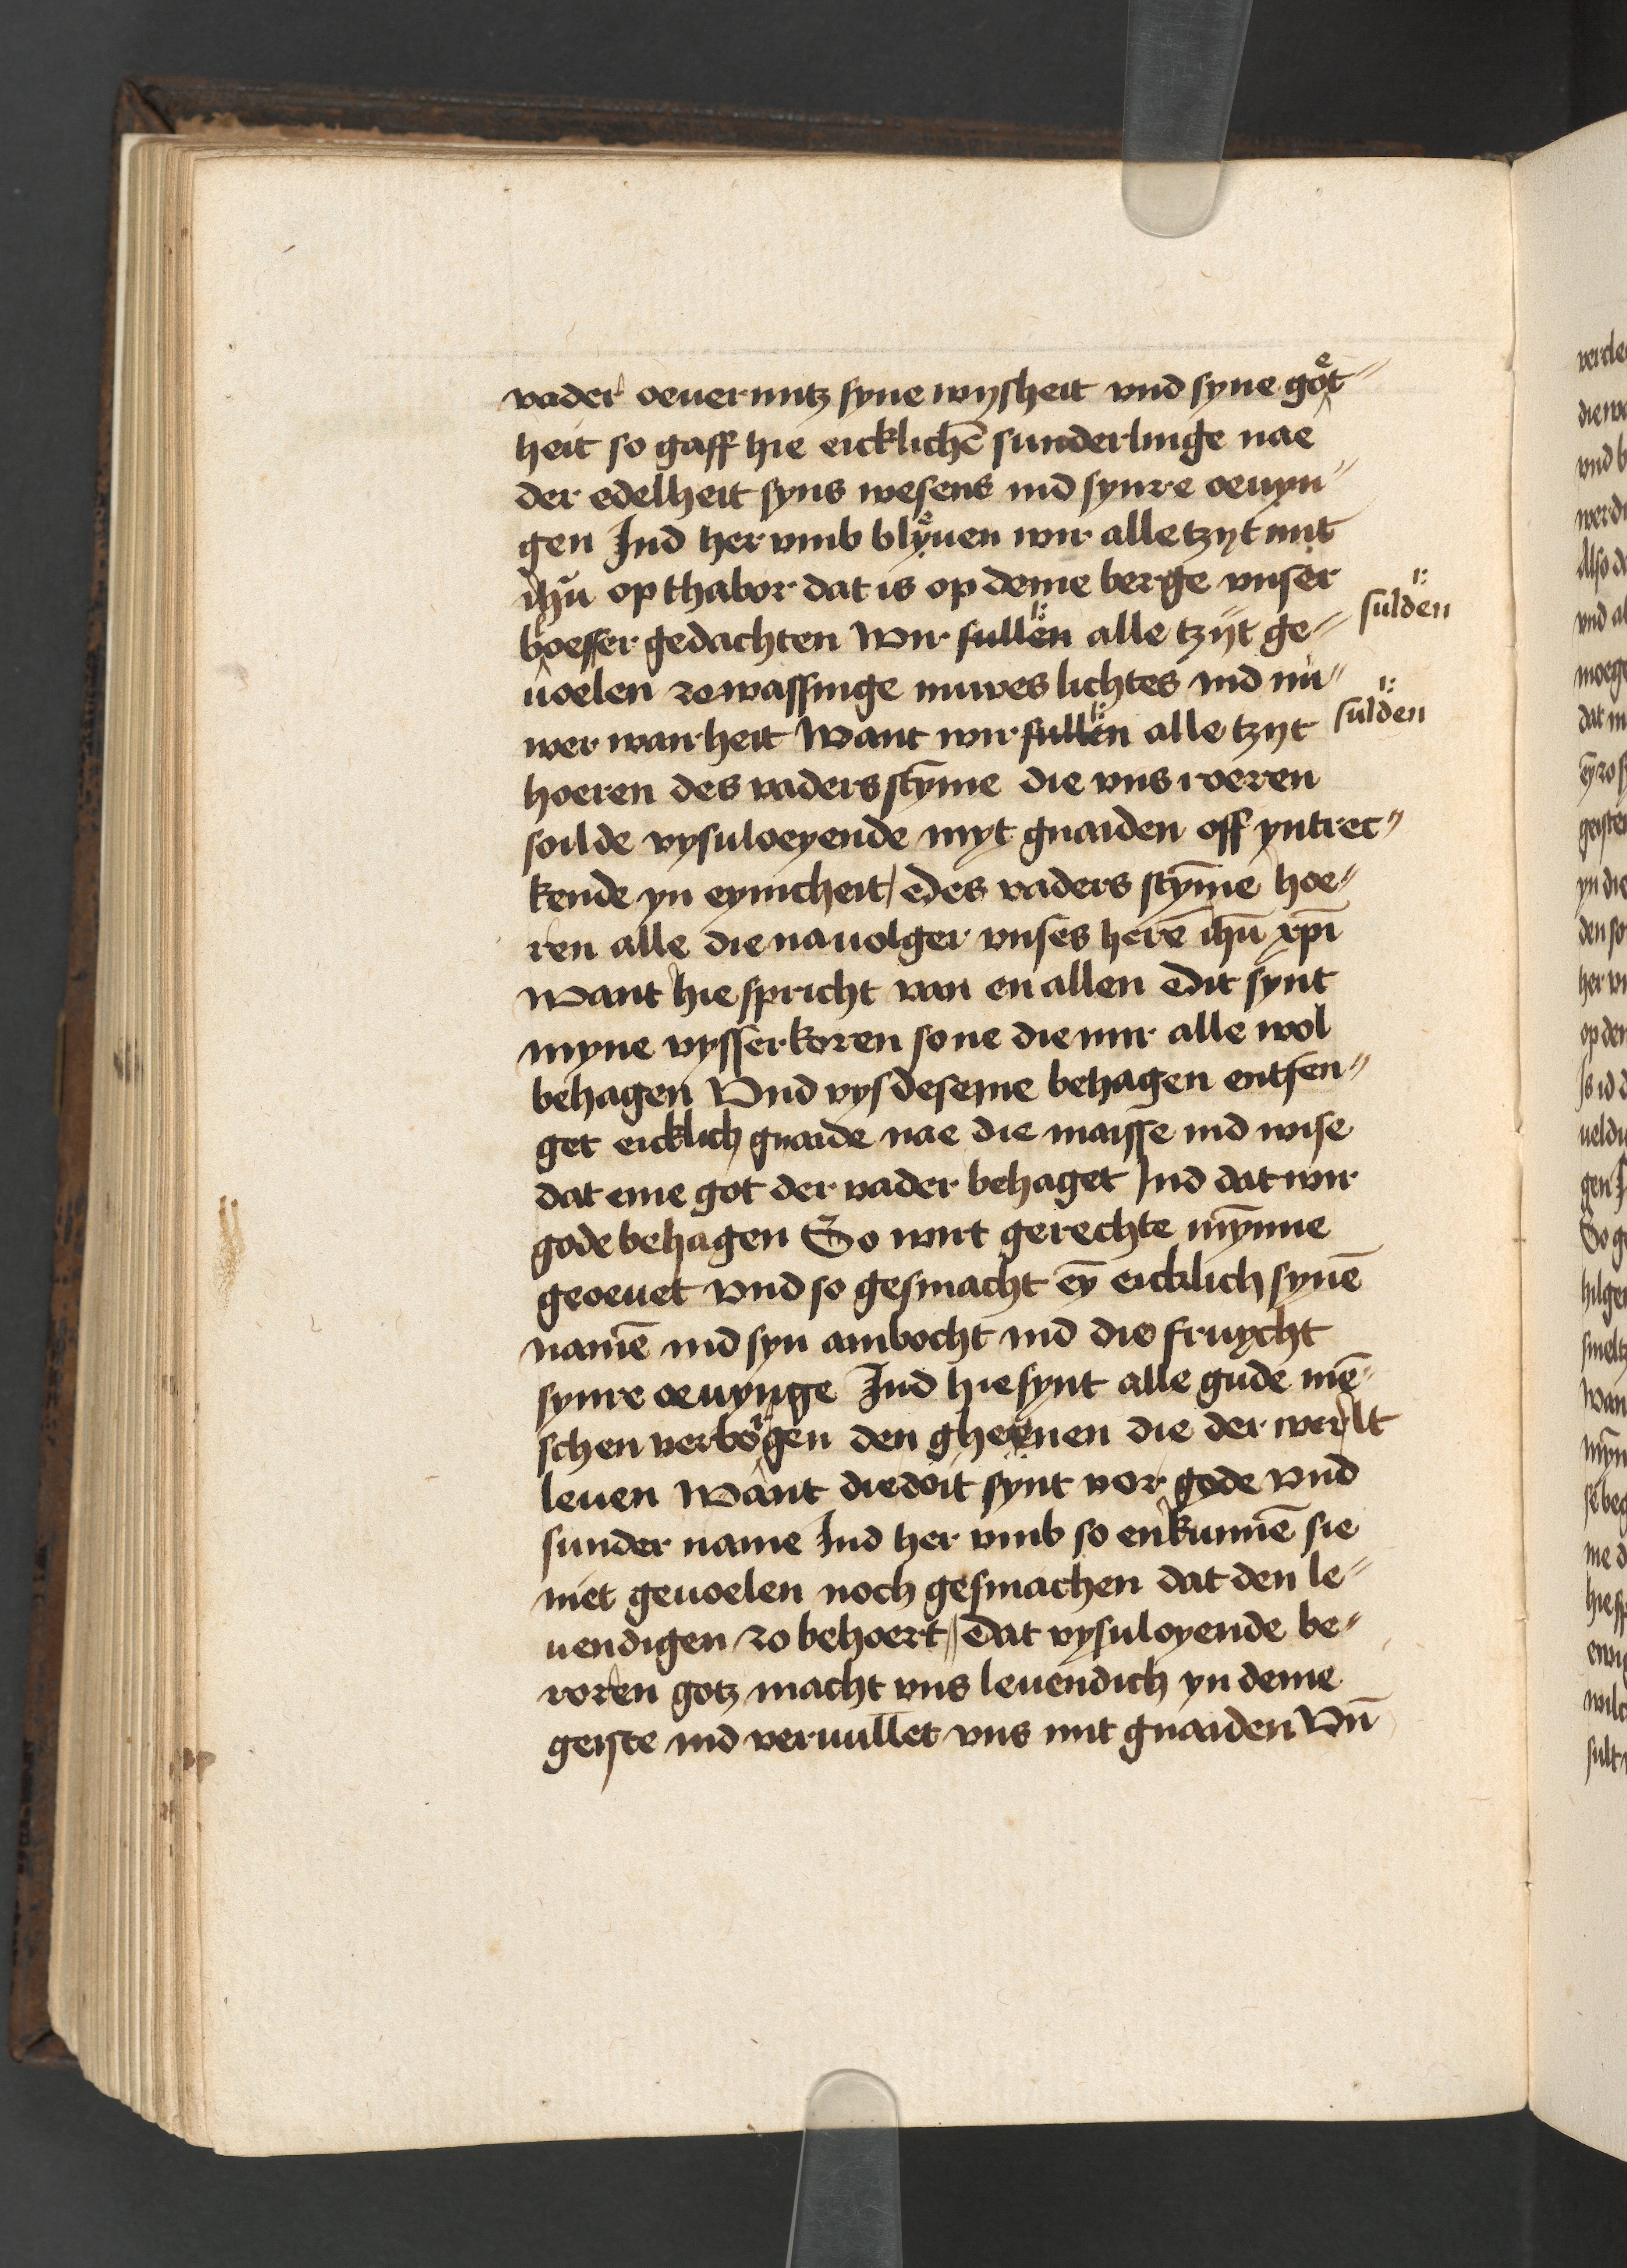 vader oeuermitz syne wysheit vnd syne goͤt⸗
heit so gaff hie eicklichē sunderlinge nae
der edelheit syns wesens ind synre oeuyn⸗
gen Ind her vmb blyͤuen wir alle tzyt mit
ihū op thabor dat is op deme berge vnser
boesser gedachten Wir sullen alle tzijt ge⸗
sulden
uoelen zo wassinge nuwes lichtes ind nu⸗
wer wairheit Want wir sullen alle tzyt
sulden
hoeren des vaders stȳme die vns roeren
soilde vysuloeyende myt gnaiden off yntrec⸗
kende yn eynicheit / des vaders stȳme hoe⸗
ren alle die nauolger vnses herē ihū xp̄i
Want hie spricht van en allen dit synt
myne vysserkoren sone die mir alle wol
behagen Vnd vys deseme behagen entfen⸗
get eicklich gnaide nae die maisse ind wise
dat eme got der vader behaget Ind dat wir
gode behagen So wirt gerechte mȳnne
geoeuet vnd so gesmacht eȳ eicklich synē
namē ind syn ambocht ind die fruycht
synre oeuynge Ind hie synt alle gude mē⸗
schen verborgen den gheenen die der werlt
leuen Want die doit synt vor gode vnd
sunder name Ind her vmb so enkunnē sie
niet geuoelen noch gesmachen dat den le⸗
uendigen zo behoert / dat vysuloyende be⸗
roren gotz macht vns leuendich yn deme
geiste ind veruullet vns mit gnaiden Vn̄